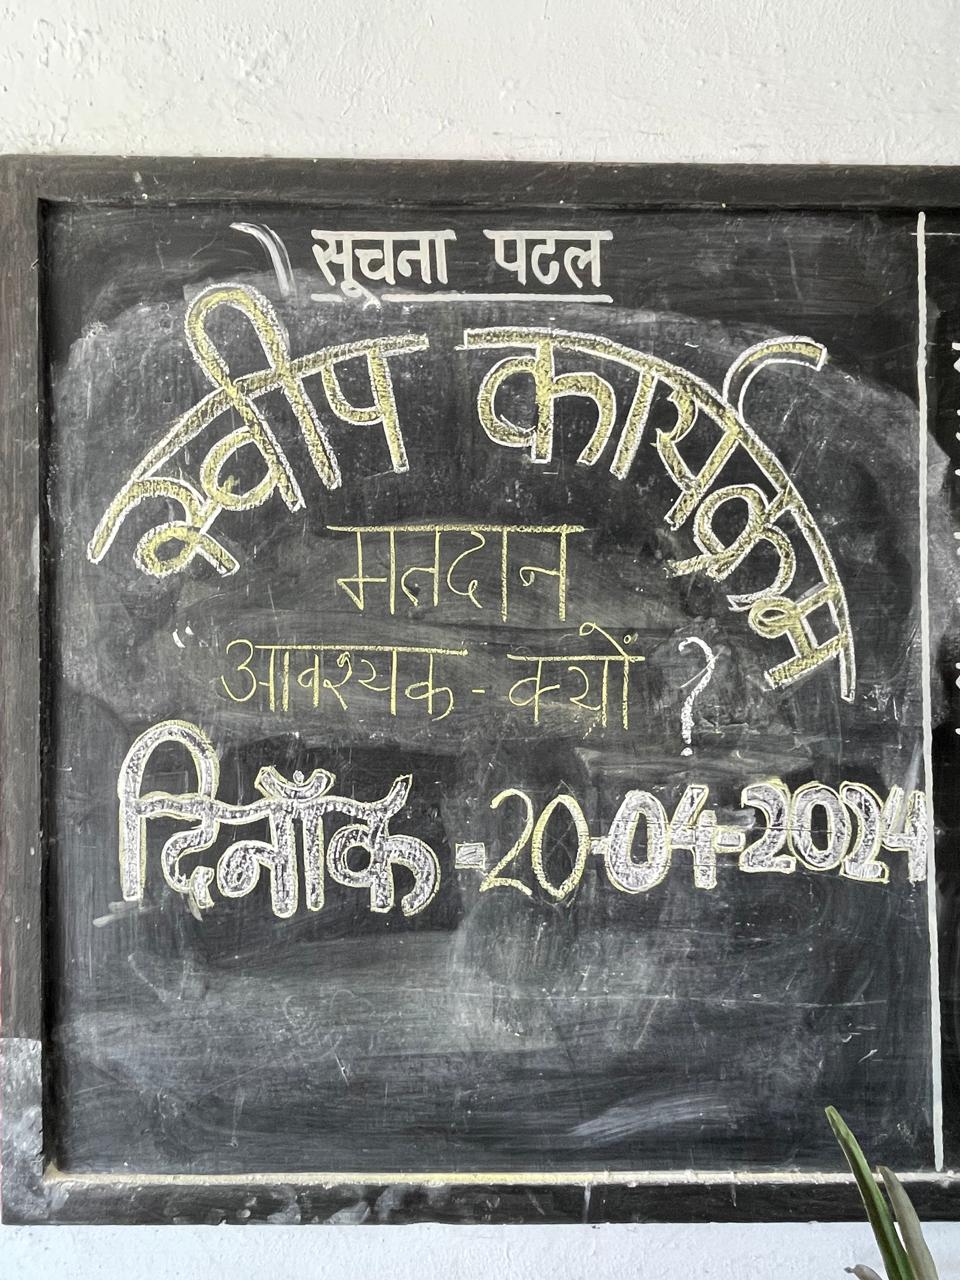 सूचना पटल
स्वीप कार्यक्रम
मतदान
आवश्यक - क्यों ?
दिनाँक - 20-04-2024